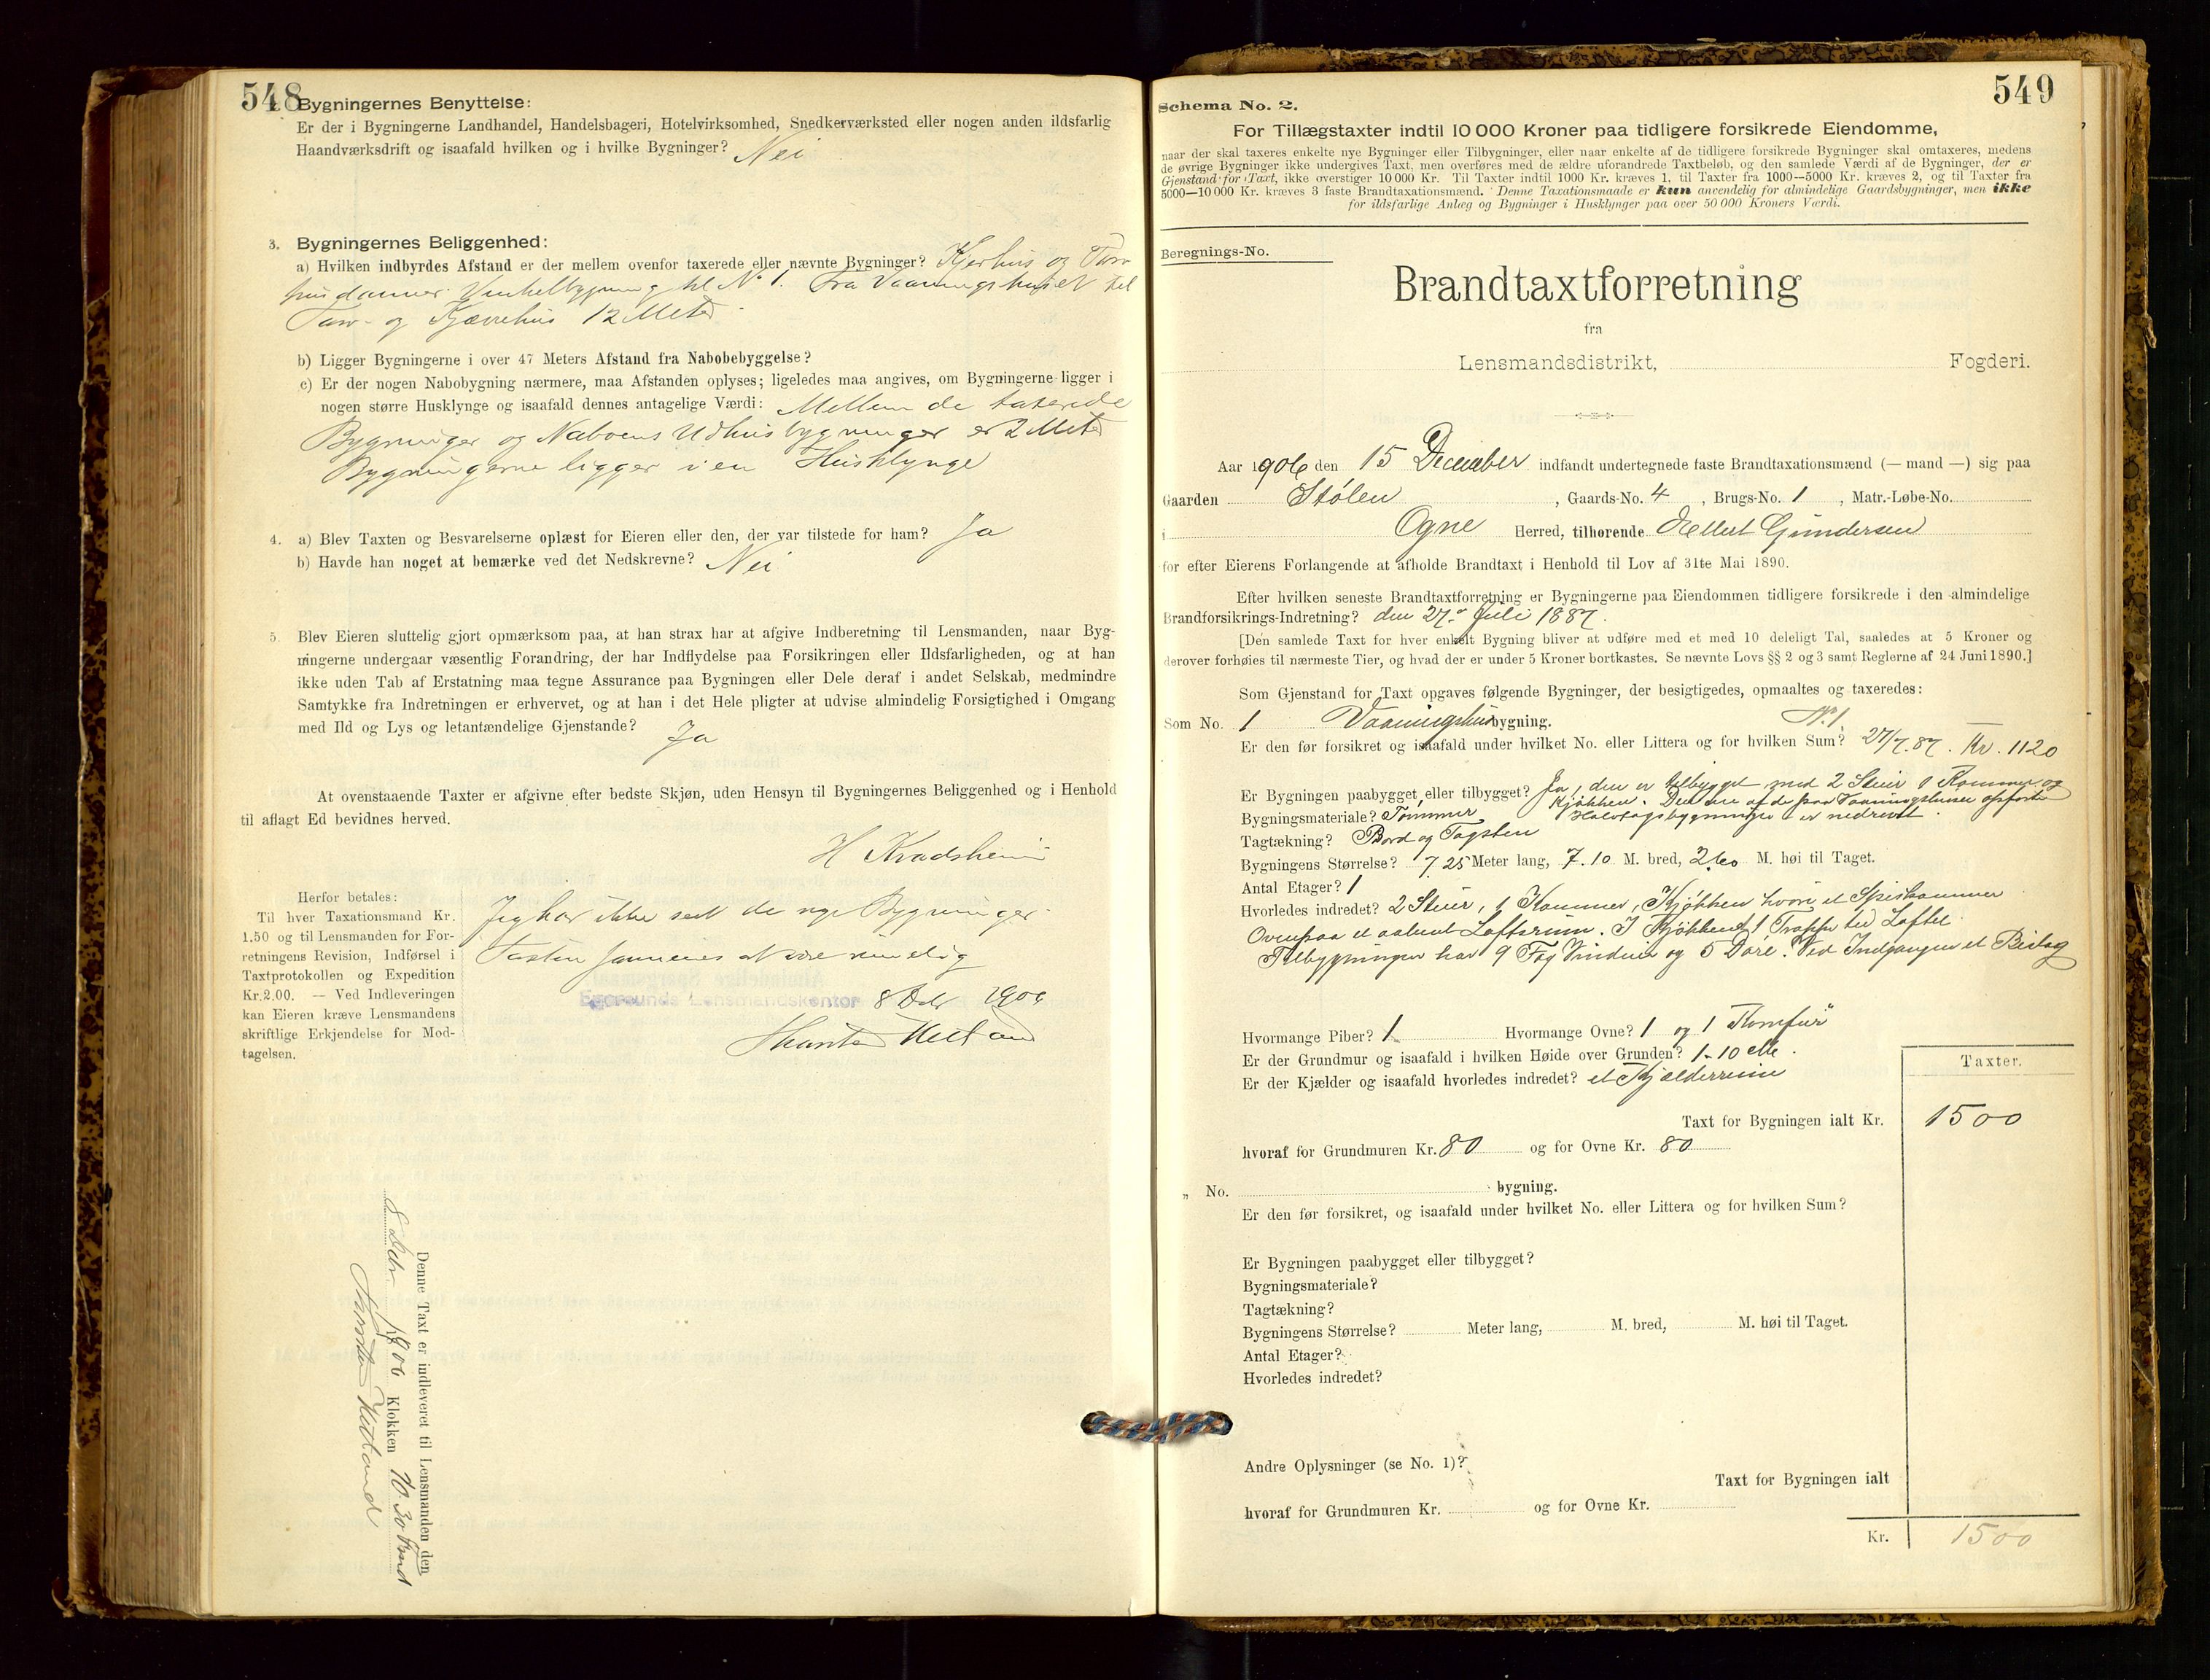 548
Bygningernes Benyttelse:
Er der i Bygningerne Landhandel, Handelsbageri, Hotelvirksomhed, Snedkerværksted eller nogen anden ildsfarlig
Haandværksdrift og isaafald hvilken og i hvilke Bygninger? Nei
3. Bygningernes Beliggenhed:
a) Hvilken indbyrdes Afstand er der mellem ovenfor taxerede eller nævnte Bygninger? Kjørhus og Tørv
hus danner Vinkelbygning til No 1. Fra Vaaningshuset til
Tørv- og Kjørrehus 12 Meter
b) Ligger Bygningerne i over 47 Meters Afstand fra Nabobebyggelse?
c) Er der nogen Nabobygning nærmere, maa Afstanden oplyses; ligeledes maa angives, om Bygningerne ligger i
nogen større Husklynge og isaafald dennes antagelige Værdi: Mellem de taxerede
Bygninger og Naboens Udhusbygninger er 2 Meter
Bygningerne ligger i en Husklynge
4. a) Blev Taxten og Besvarelserne oplæst for Eieren eller den, der var tilstede for ham? Ja
b) Havde han noget at bemærke ved det Nedskrevne? Nei
5. Blev Eieren sluttelig gjort opmærksom paa, at han strax har at afgive Indberetning til Lensmanden, naar Byg-
ningerne undergaar væsentlig Forandring, der har Indflydelse paa Forsikringen eller Ildsfarligheden, og at han
ikke uden Tab af Erstatning maa tegne Assurance paa Bygningen eller Dele deraf i andet Selskab, medmindre
Samtykke fra Indretningen er erhvervet, og at han i det Hele pligter at udvise almindelig Forsigtighed i Omgang
med Ild og Lys og letantændelige Gjenstande? Ja
At ovenstaaende Taxter er afgivne efter bedste Skjøn, uden Hensyn til Bygningernes Beliggenhed og i Henhold
til aflagt Ed bevidnes herved.
H Kvadsheim
Herfor betales:
Til hver Taxationsmand Kr.
1.50 og til Lensmanden for For-
retningens Revision, Indførsel i
Taxtprotokollen og Expedition
Kr. 2.00. — Ved Indleveringen
kan Eieren kræve Lensmandens
skriftlige Erkjendelse for Mod-
tagelsen.
Jeg har ikke seet de nye Bygninger
Taxten synes at være rimelig
Egersunds Lensmandskontor 8 1906
Denne Taxt er indleveret til Lensmanden den
8 1906 Klokken 10.30
549
Schema No. 2.
For Tillægstaxter indtil 10 000 Kroner paa tidligere forsikrede Eiendomme,
naar der skal taxeres enkelte nye Bygninger eller Tilbygninger, eller naar enkelte af de tidligere forsikrede Bygninger skal omtaxeres, medens
de øvrige Bygninger ikke undergives Taxt, men overføres med de ældre uforandrede Taxtbeløb, og den samlede Værdi af de Bygninger, der er
Gjenstand for Taxt, ikke overstiger 10 000 Kr. Til Taxter indtil 1000 Kr. kræves 1, til Taxter fra 1000—5000 Kr. kræves 2, og til Taxter fra
5000—10 000 Kr. kræves 3 faste Brandtaxationsmænd. Denne Taxationsmaade er kun anvendelig for almindelige Gaardsbygninger, men ikke
for ildsfarlige Anlæg og Bygninger i Husklynger paa over 50 000 Kroners Værdi.
Beregnings-No.
Brandtaxtforretning
fra
Lensmandsdistrikt, Fogderi.
Aar 1906 den 15 December indfandt undertegnede faste Brandtaxationsmænd (— mand —) sig paa
Gaarden Stølen, Gaards-No. 4, Brugs-No. 1, Matr.-Løbe-No.
i Ogne Herred, tilhørende Ellert Gundersen
for efter Eierens Forlangende at afholde Brandtaxt i Henhold til Lov af 31te Mai 1890.
Efter hvilken seneste Brandtaxtforretning er Bygningerne paa Eiendommen tidligere forsikrede i den almindelige
Brandforsikrings-Indretning? den 27. Juli 1887.
[Den samlede Taxt for hver enkelt Bygning bliver at udføre med et med 10 deleligt Tal, saaledes at 5 Kroner og
derover forhøies til nærmeste Tier, og hvad der er under 5 Kroner bortkastes. Se nævnte Lovs §§ 2 og 3 samt Reglerne af 24 Juni 1890.]
Som Gjenstand for Taxt opgaves følgende Bygninger, der besigtigedes, opmaaltes og taxeredes:
Som No. 1 Vaaningshusbygning. No. 1
Er den før forsikret og isaafald under hvilket No. eller Littera og for hvilken Sum? 27/7.87. Kr. 1120
Er Bygningen paabygget eller tilbygget? Ja, den er tilbygget med 2 Stuer 1 Kammer og
Kjøkken. Den ene af de paa Vaaningshuset opførte
Bygningsmateriale? Tømmer Halvtagsbygninger er nedrevet.
Tagtækning? Bord og Tagsten
Bygningens Størrelse? 7.25 Meter lang, 7.10 M. bred, 2.60 M. høi til Taget.
Antal Etager? 1
Hvorledes indredet? 2 Stuer, 1 Kammer, Kjøkken hvori et Spiskammer
Ovenpaa et aabent Loftsrum. I Kjøkkenet 1 Trappe til Loftet
Tilbygningen har 9 Fag Vinduer og 5 Døre. Ved Indgangen et Bislag
Hvormange Piber? 1 Hvormange Ovne? 1 og 1 Komfur
Er der Grundmur og isaafald i hvilken Høide over Grunden? 1-10 Me.
Er der Kjælder og isaafald hvorledes indredet? et Kjælderrum
Taxter.
Taxt for Bygningen ialt Kr. 1500
hvoraf for Grundmuren Kr. 80 og for Ovne Kr. 80
„ No. bygning.
Er den før forsikret, og isaafald under hvilket No. eller Littera og for hvilken Sum?
Er Bygningen paabygget eller tilbygget?
Bygningsmateriale?
Tagtækning?
Bygningens Størrelse? Meter lang, M. bred, M. høi til Taget.
Antal Etager?
Hvorledes indredet?
Andre Oplysninger (se No. 1)?
Taxt for Bygningen ialt
hvoraf for Grundmuren Kr. og for Ovne Kr.
Kr. 1500